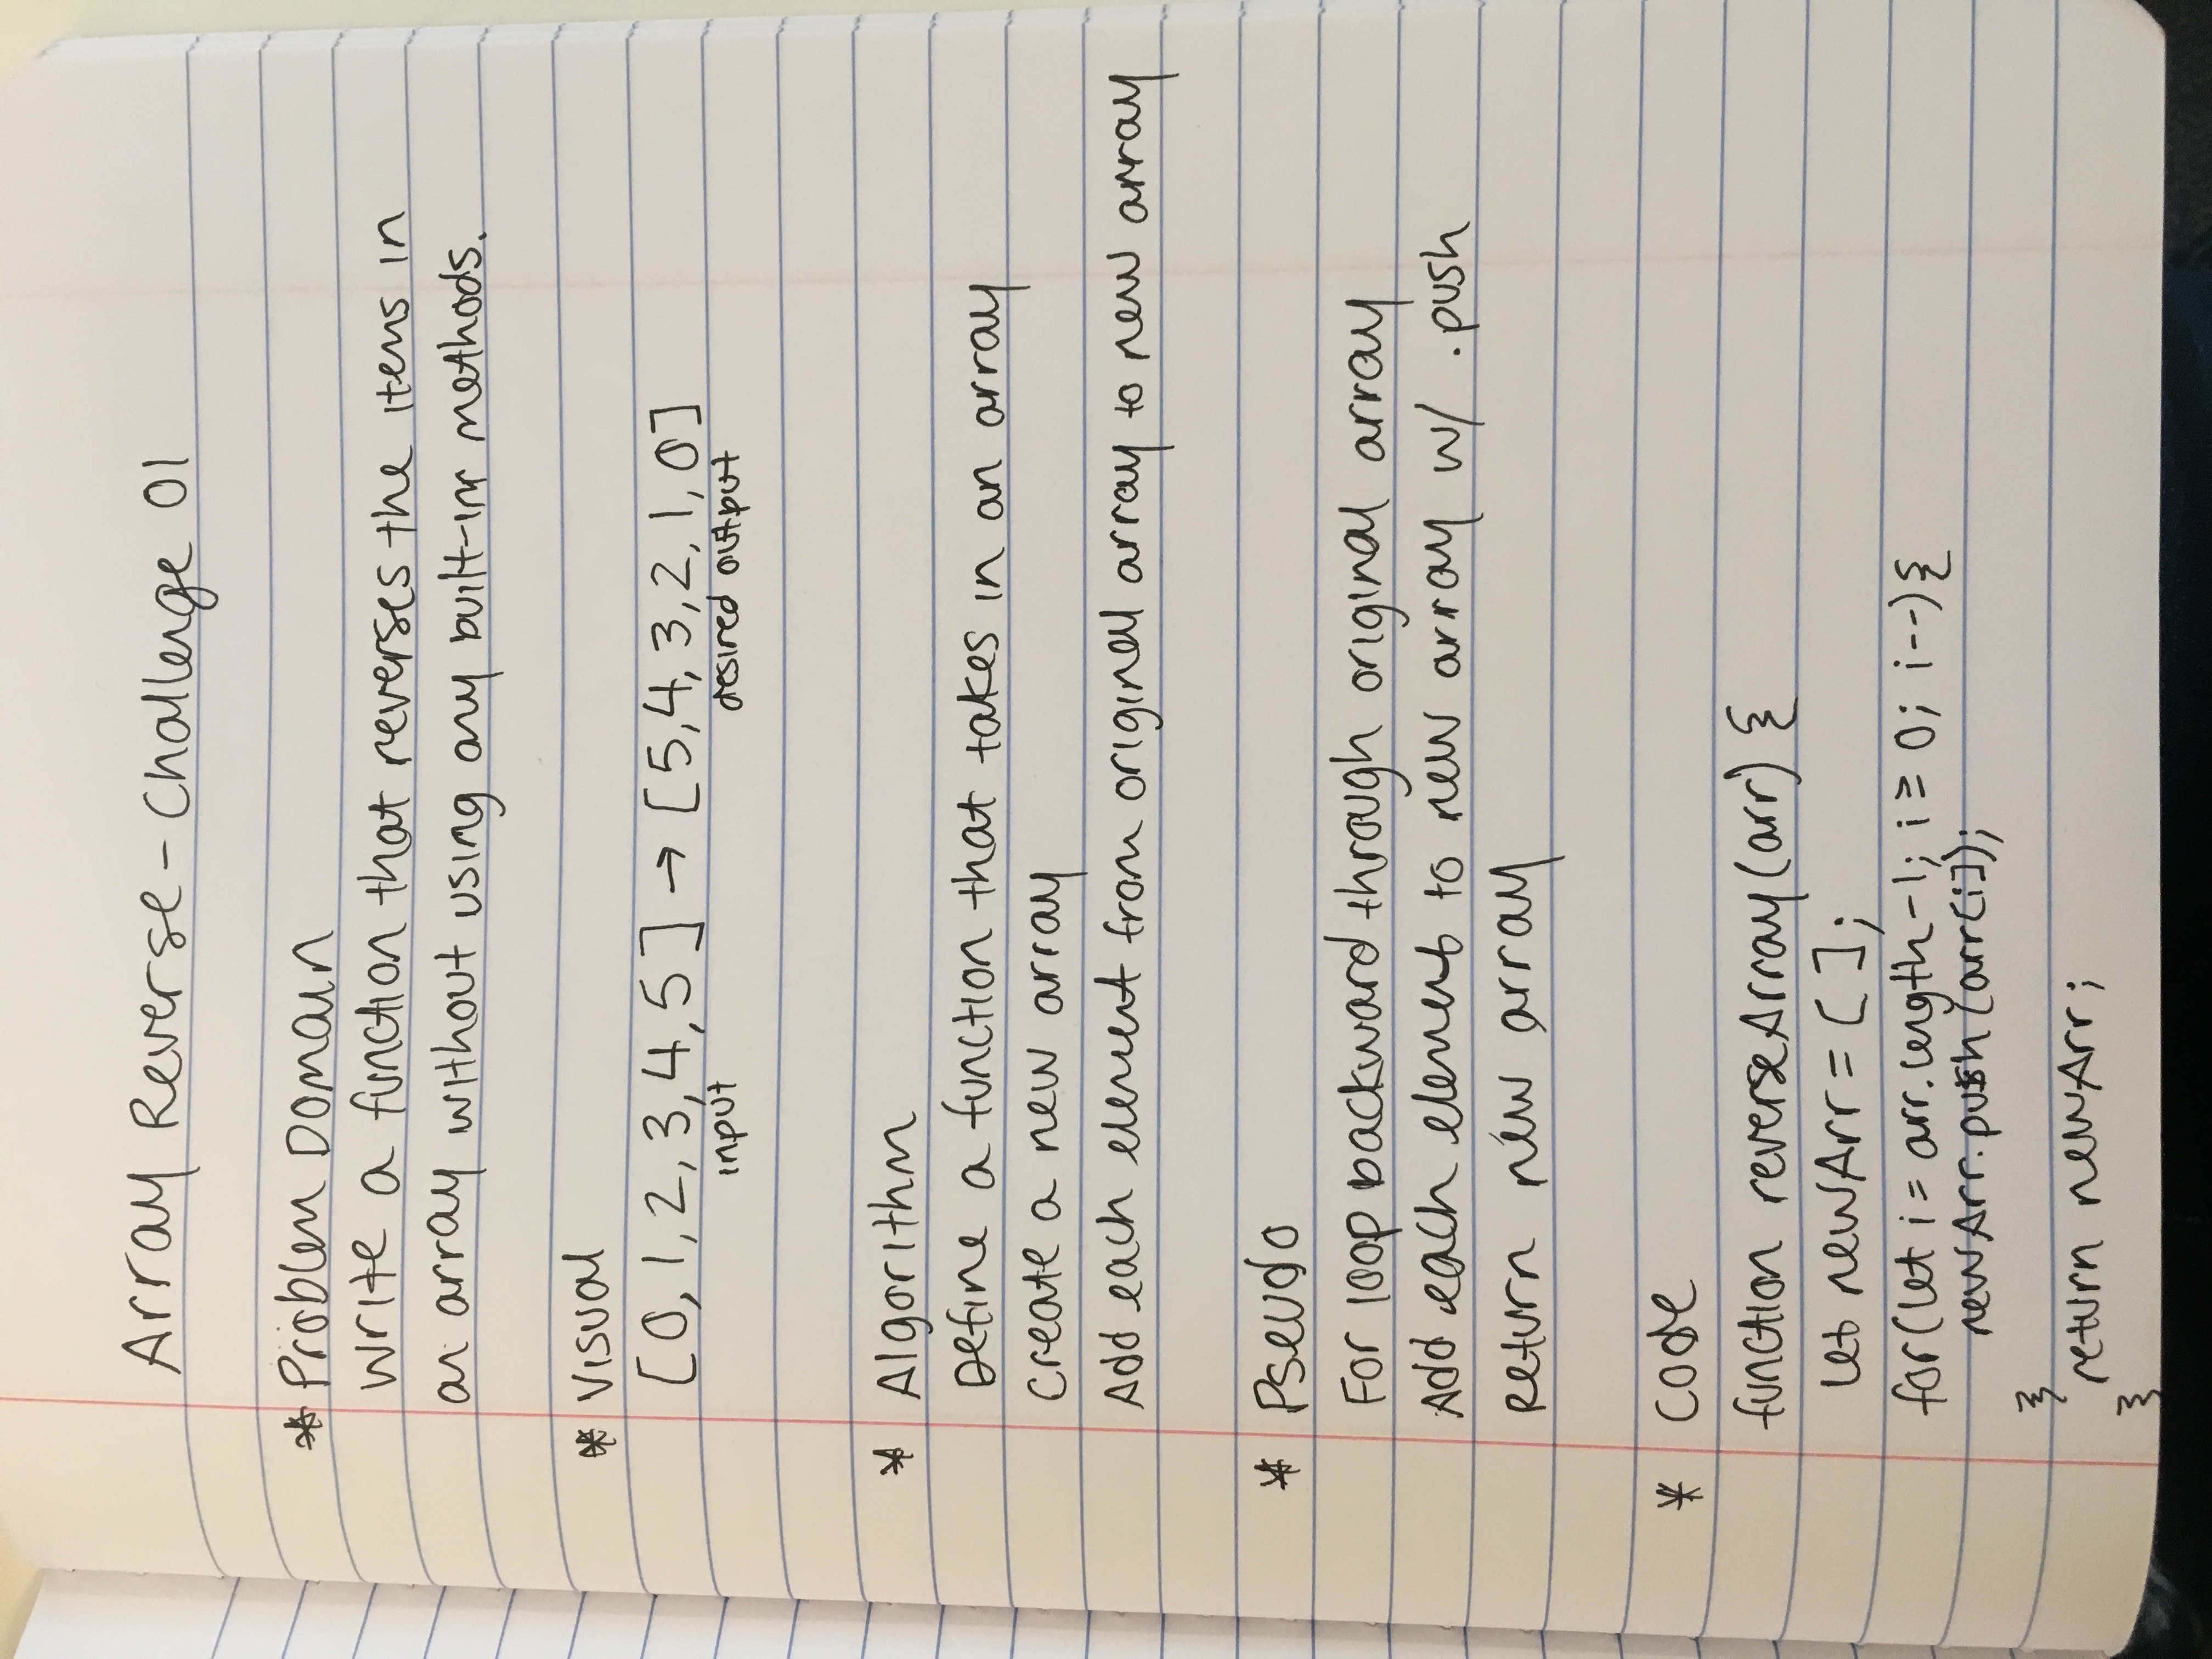 Array Reverse - Challenge 01
* Problem Domain
Write a function that reverses the items in
an array without using any built-in methods.
* Visual
[0, 1, 2, 3, 4, 5] → [5, 4, 3, 2, 1, 0]
input desired output
* Algorithm
Define a function that takes in an array
Create a new array
Add each element from original array to new array
* Pseudo
For loop backward through original array
Add each element to new array w/ .push
Return new array
* Code
function reverseArray(arr) {
let newArr = [ ];
for(let i = arr.length-1; i ≥ 0; i--){
newArr.push(arr[i]);
}
return newArr;
}